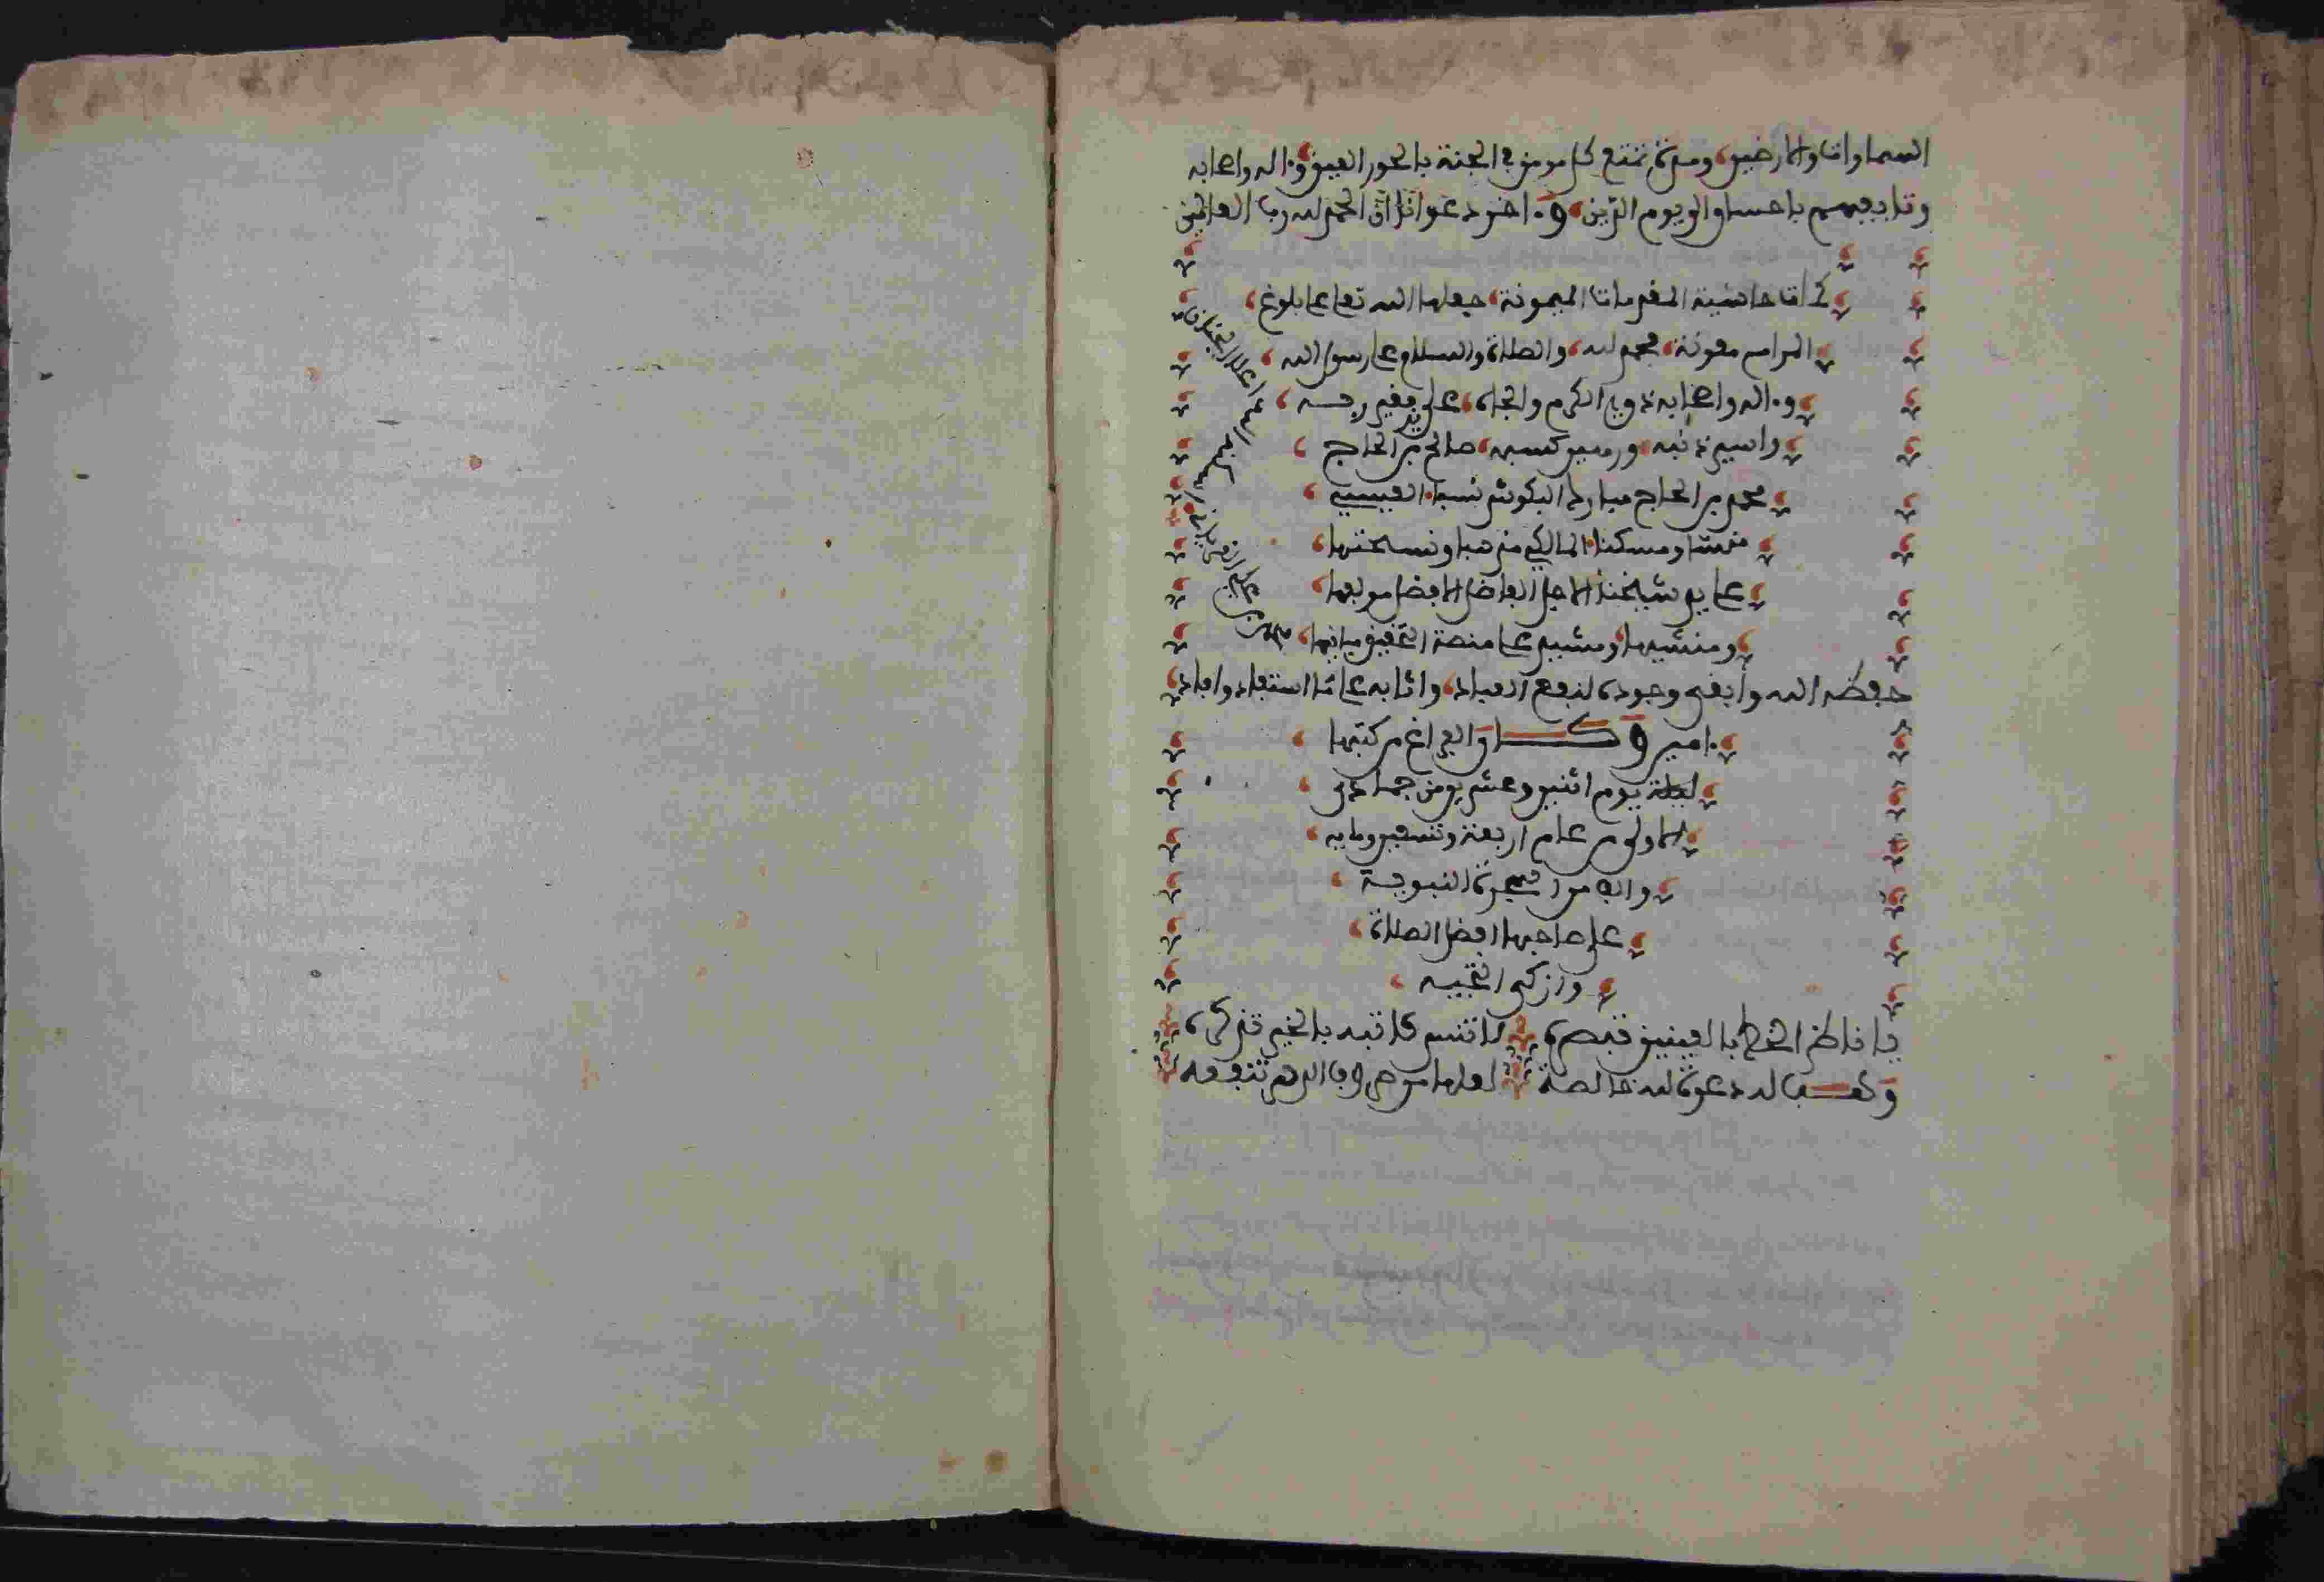 السماوات والارضين، ومدة تمتع كل مومن في الجنة بالحور العين، وءاله واصحابه
وتابعيهم باحسان الى يوم الدين، وءاخر دعوانا ان الحمد لله رب العالمين
كملت حاشية المقدمات الميمونة، جعلها الله تعلى على بلوغ
المرام معونة، بحمد الله، والصلاة والسلام على رسول الله،
وءاله واصحابه ذوي الكرم والجاه، على يد فقير ربه،
واسير ذنبه، ورهين كسبه، صالح بن الحاج
محمد بن الحاج مبارك الكونشي نسبا، العيسي
منشئا ومسكنا، المالكي مذهبا، ونسختها
على يد شيخنا الاجل الفاضل الافضل مولفها
ومنشيها، ومشيد على منصة التحقيق مبانيها،
حفظه الله وابقى وجوده لنفع العباد، واثابه على ما استفاد وافاد،
ءامين وكان الفراغ من كتبها
ليلة يوم اثنين وعشرين من جمادى
الاولى من عام اربعة وتسعين وماية
والف من الهجرة النبوية
على صاحبها افضل الصلاة
وازكى التحية
يا ناظر الخط بالعينين تبصره لا تنس كاتبه بالخير تذكره
وهب له دعوة لله خالصة لعلها من صروف الدهر تنفعه